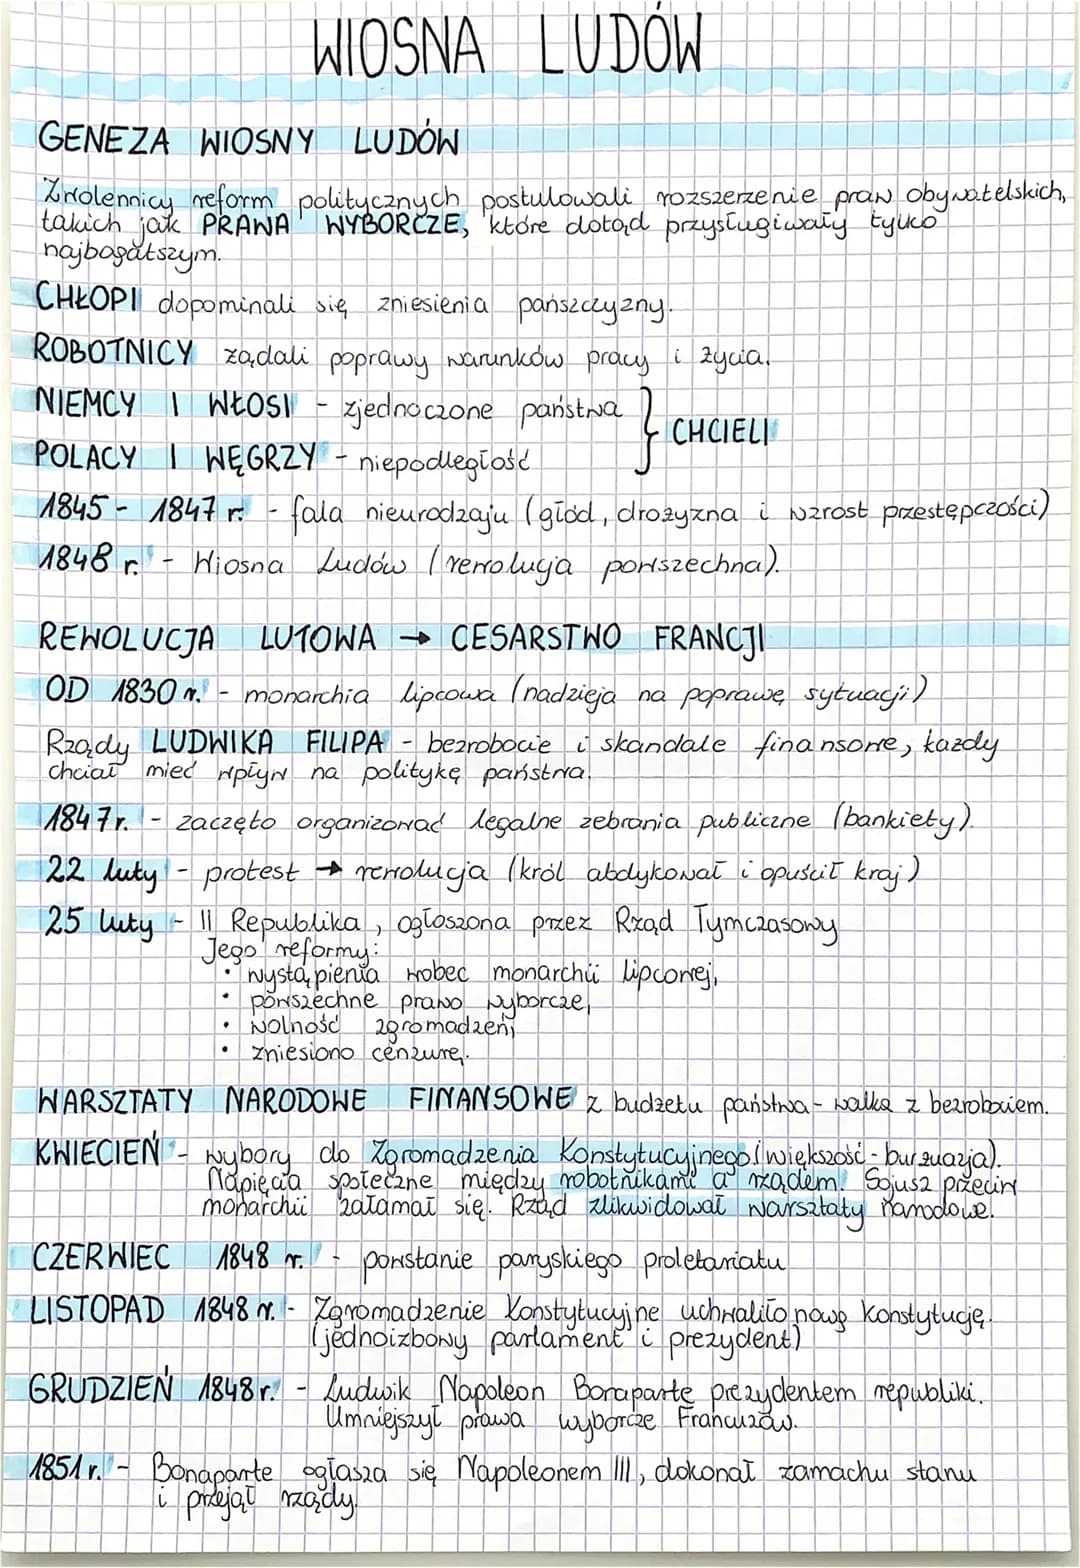 WIOSNA LUDÓW
GENEZA WIOSNY LUDÓW
Zwolennicy reform politycznych postulowali rozszerzenie praw obywatelskich,
takich jak PRAWA WYBORCZE, które dotąd przysługiwały tylko
najbogatszym.
CHŁOPI dopominali się zniesienia pańszczyzny.
ROBOTNICY żądali poprawy warunków pracy i życia.
NIEMCY I WŁOSI - zjednoczone państwa } CHCIELI
POLACY I WĘGRZY - niepodległość
1845 - 1847 r. - fala nieurodzaju (głód, drożyzna i wzrost przestępczości)
1848 r. - Wiosna Ludów (rewolucja powszechna).
REWOLUCJA LUTOWA → CESARSTWO FRANCJI
OD 1830 r. - monarchia lipcowa (nadzieja na poprawę sytuacji)
Rządy LUDWIKA FILIPA - bezrobocie i skandale finansowe, każdy
chciał mieć wpływ na politykę państwa.
1847r. - zaczęto organizować legalne zebrania publiczne (bankiety).
22 luty - protest → rewolucja (król abdykował i opuścił kraj)
25 luty - II Republika, ogłoszona przez Rząd Tymczasowy
Jego reformy:
• wystąpienia wobec monarchii lipcowej,
• powszechne prawo wyborcze,
• wolność zgromadzeń,
• zniesiono cenzurę.
WARSZTATY NARODOWE FINANSOWE z budżetu państwa - walka z bezrobociem.
KWIECIEŃ - wybory do Zgromadzenia Konstytucyjnego (większość - burżuazja).
Napięcia społeczne między robotnikami a rządem. Sojusz przeciw
monarchii załamał się. Rząd zlikwidował warsztaty narodowe.
CZERWIEC 1848 r. - powstanie paryskiego proletariatu
LISTOPAD 1848 r. - Zgromadzenie Konstytucyjne uchwaliło nową Konstytucję.
(jednoizbowy parlament i prezydent)
GRUDZIEŃ 1848r. - Ludwik Napoleon Bonaparte prezydentem republiki.
Umniejszył prawa wyborcze Francuzów.
1851 r. - Bonaparte ogłasza się Napoleonem III, dokonał zamachu stanu
i przejął rządy.